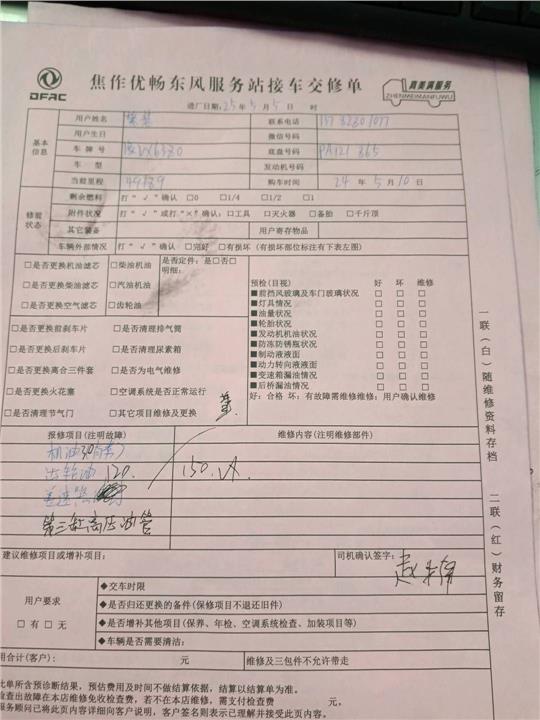 DFAC
焦作优畅东风服务站接车交修单
真美满服务
ZHENMEIMANFUWU
进厂日期:25年5月5日 时
基本信息
用户姓名 联系电话
用户生日 微信号码
车牌号 底盘号码 PA121 865
车型 发动机号码
当前里程 49789 购车时间 24年5月10日
修前状态
剩余燃料 打“√”确认 □0 □1/4 □1/2 □1
附件状况 打“√”或打“×”确认:□工具 □灭火器 □备胎 □千斤顶
其它装备 用户寄存物品
车辆外部情况 打“√”确认 □完好 □有损坏(有损坏部位标注有下表左图)
□是否更换机油滤芯 □柴油机油 是否定件:是□否□
□是否更换柴油滤芯 □汽油机油 明细:
□是否更换空气滤芯 □齿轮油
□是否更换前刹车片 □是否清理排气筒
□是否更换后刹车片 □是否清理尿素箱
□是否更换离合三件套 □是否为电气维修
□是否更换火花塞 □空调系统是否正常运行
□是否清理节气门 □其它项目维修及更换
预检(目视) 好 坏 维修
■前挡风玻璃及车门玻璃状况 □ □ □
■灯具情况 □ □ □
■油量状况 □ □ □
■轮胎状况 □ □ □
■发动机机油状况 □ □ □
■防冻防锈瓶状况 □ □ □
■制动液液面 □ □ □
■动力转向液液面 □ □ □
■变速箱漏油情况 □ □ □
■后桥漏油情况 □ □ □
好:合格 坏:有故障需维修维修:用户确认维修
报修项目(注明故障) 维修内容(注明维修部件)
机油
齿轮油 120. 150.
差速器
第三缸高压油管
建议维修项目或增补项目: 司机确认签字:
用户要求
□有 □无
◆交车时限
◆是否归还更换的备件(保修项目不退还旧件)
◆是否增补其他项目(保养、年检、空调系统检查、加装项目等)
◆车辆是否需要清洁:
用合计(客户): 元 维修及三包件不允许带走
此单所含预诊断结果,预估费用及时间不做结算依据,结算以结算单为准。
检查出故障在本店维修免收检查费,若不在本店维修,需支付检查费 元。
服务顾问已将此页内容详细向客户说明,客户签名则表示已理解并接受此页内容。
一联(白)随维修资料存档
二联(红)财务留存